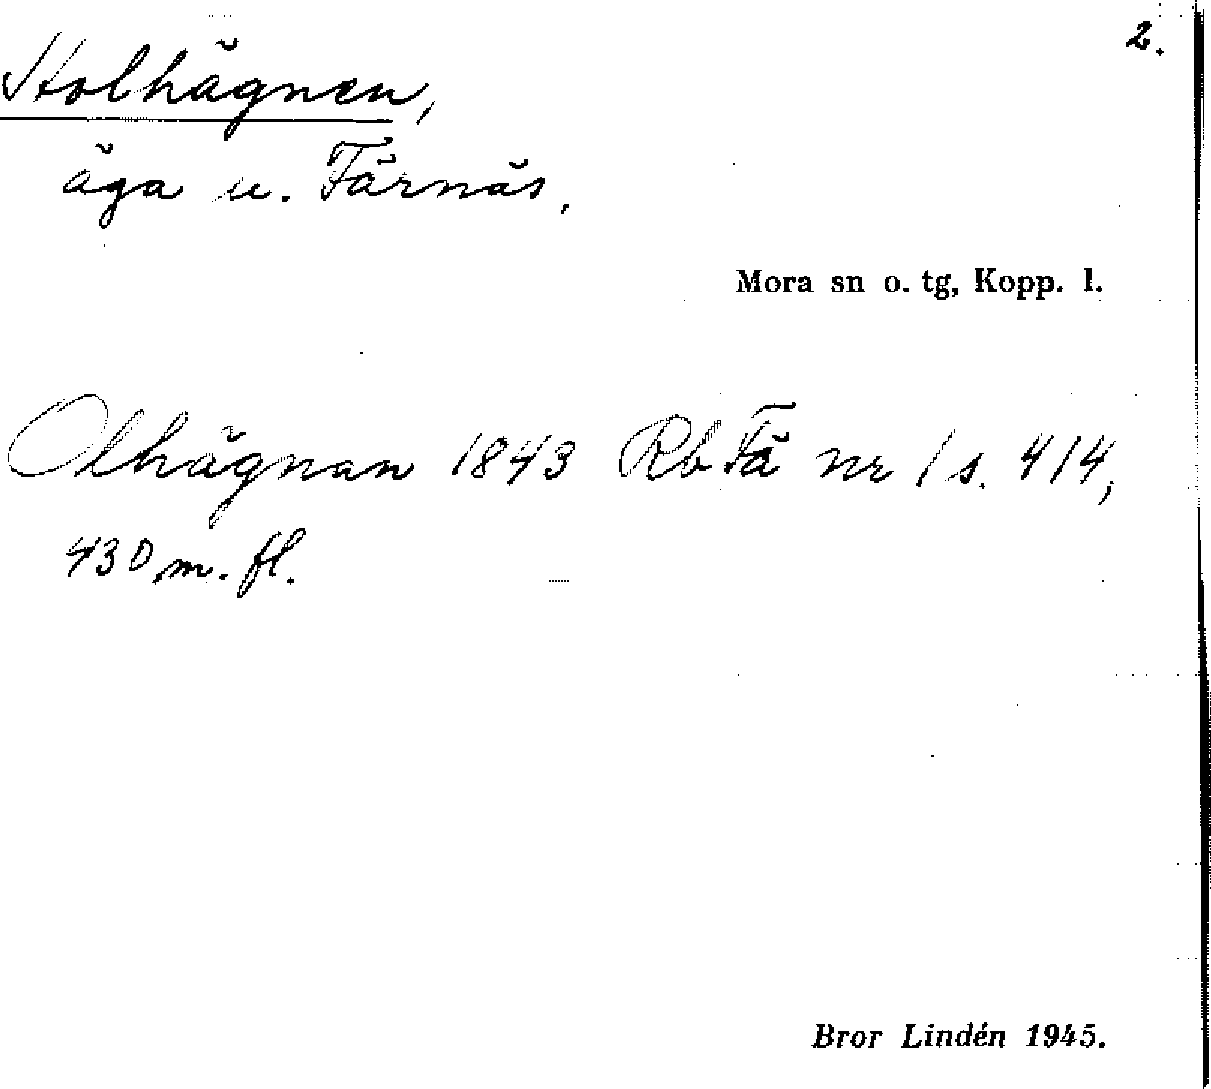 2.
Stolhägnen,
äga u. Färnäs.
Mora sn o. tg, Kopp. l.
Olhägnan 1843 Rb Fä nr 1 s. 414,
430 m. fl.
Bror Lindén 1945.